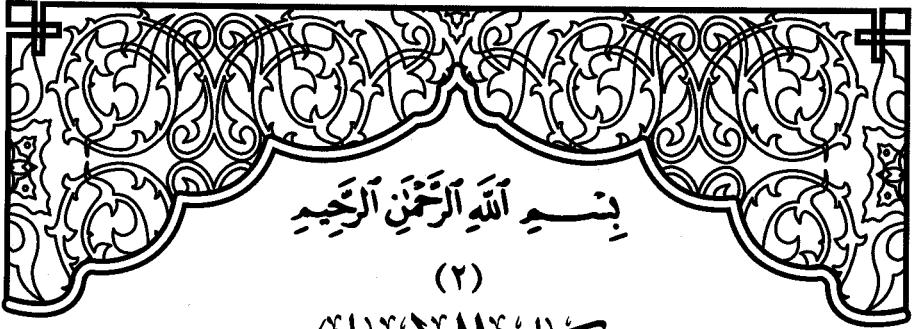 بِسْمِ ٱللَّهِ ٱلرَّحْمَٰنِ ٱلرَّحِيمِ
(٢)